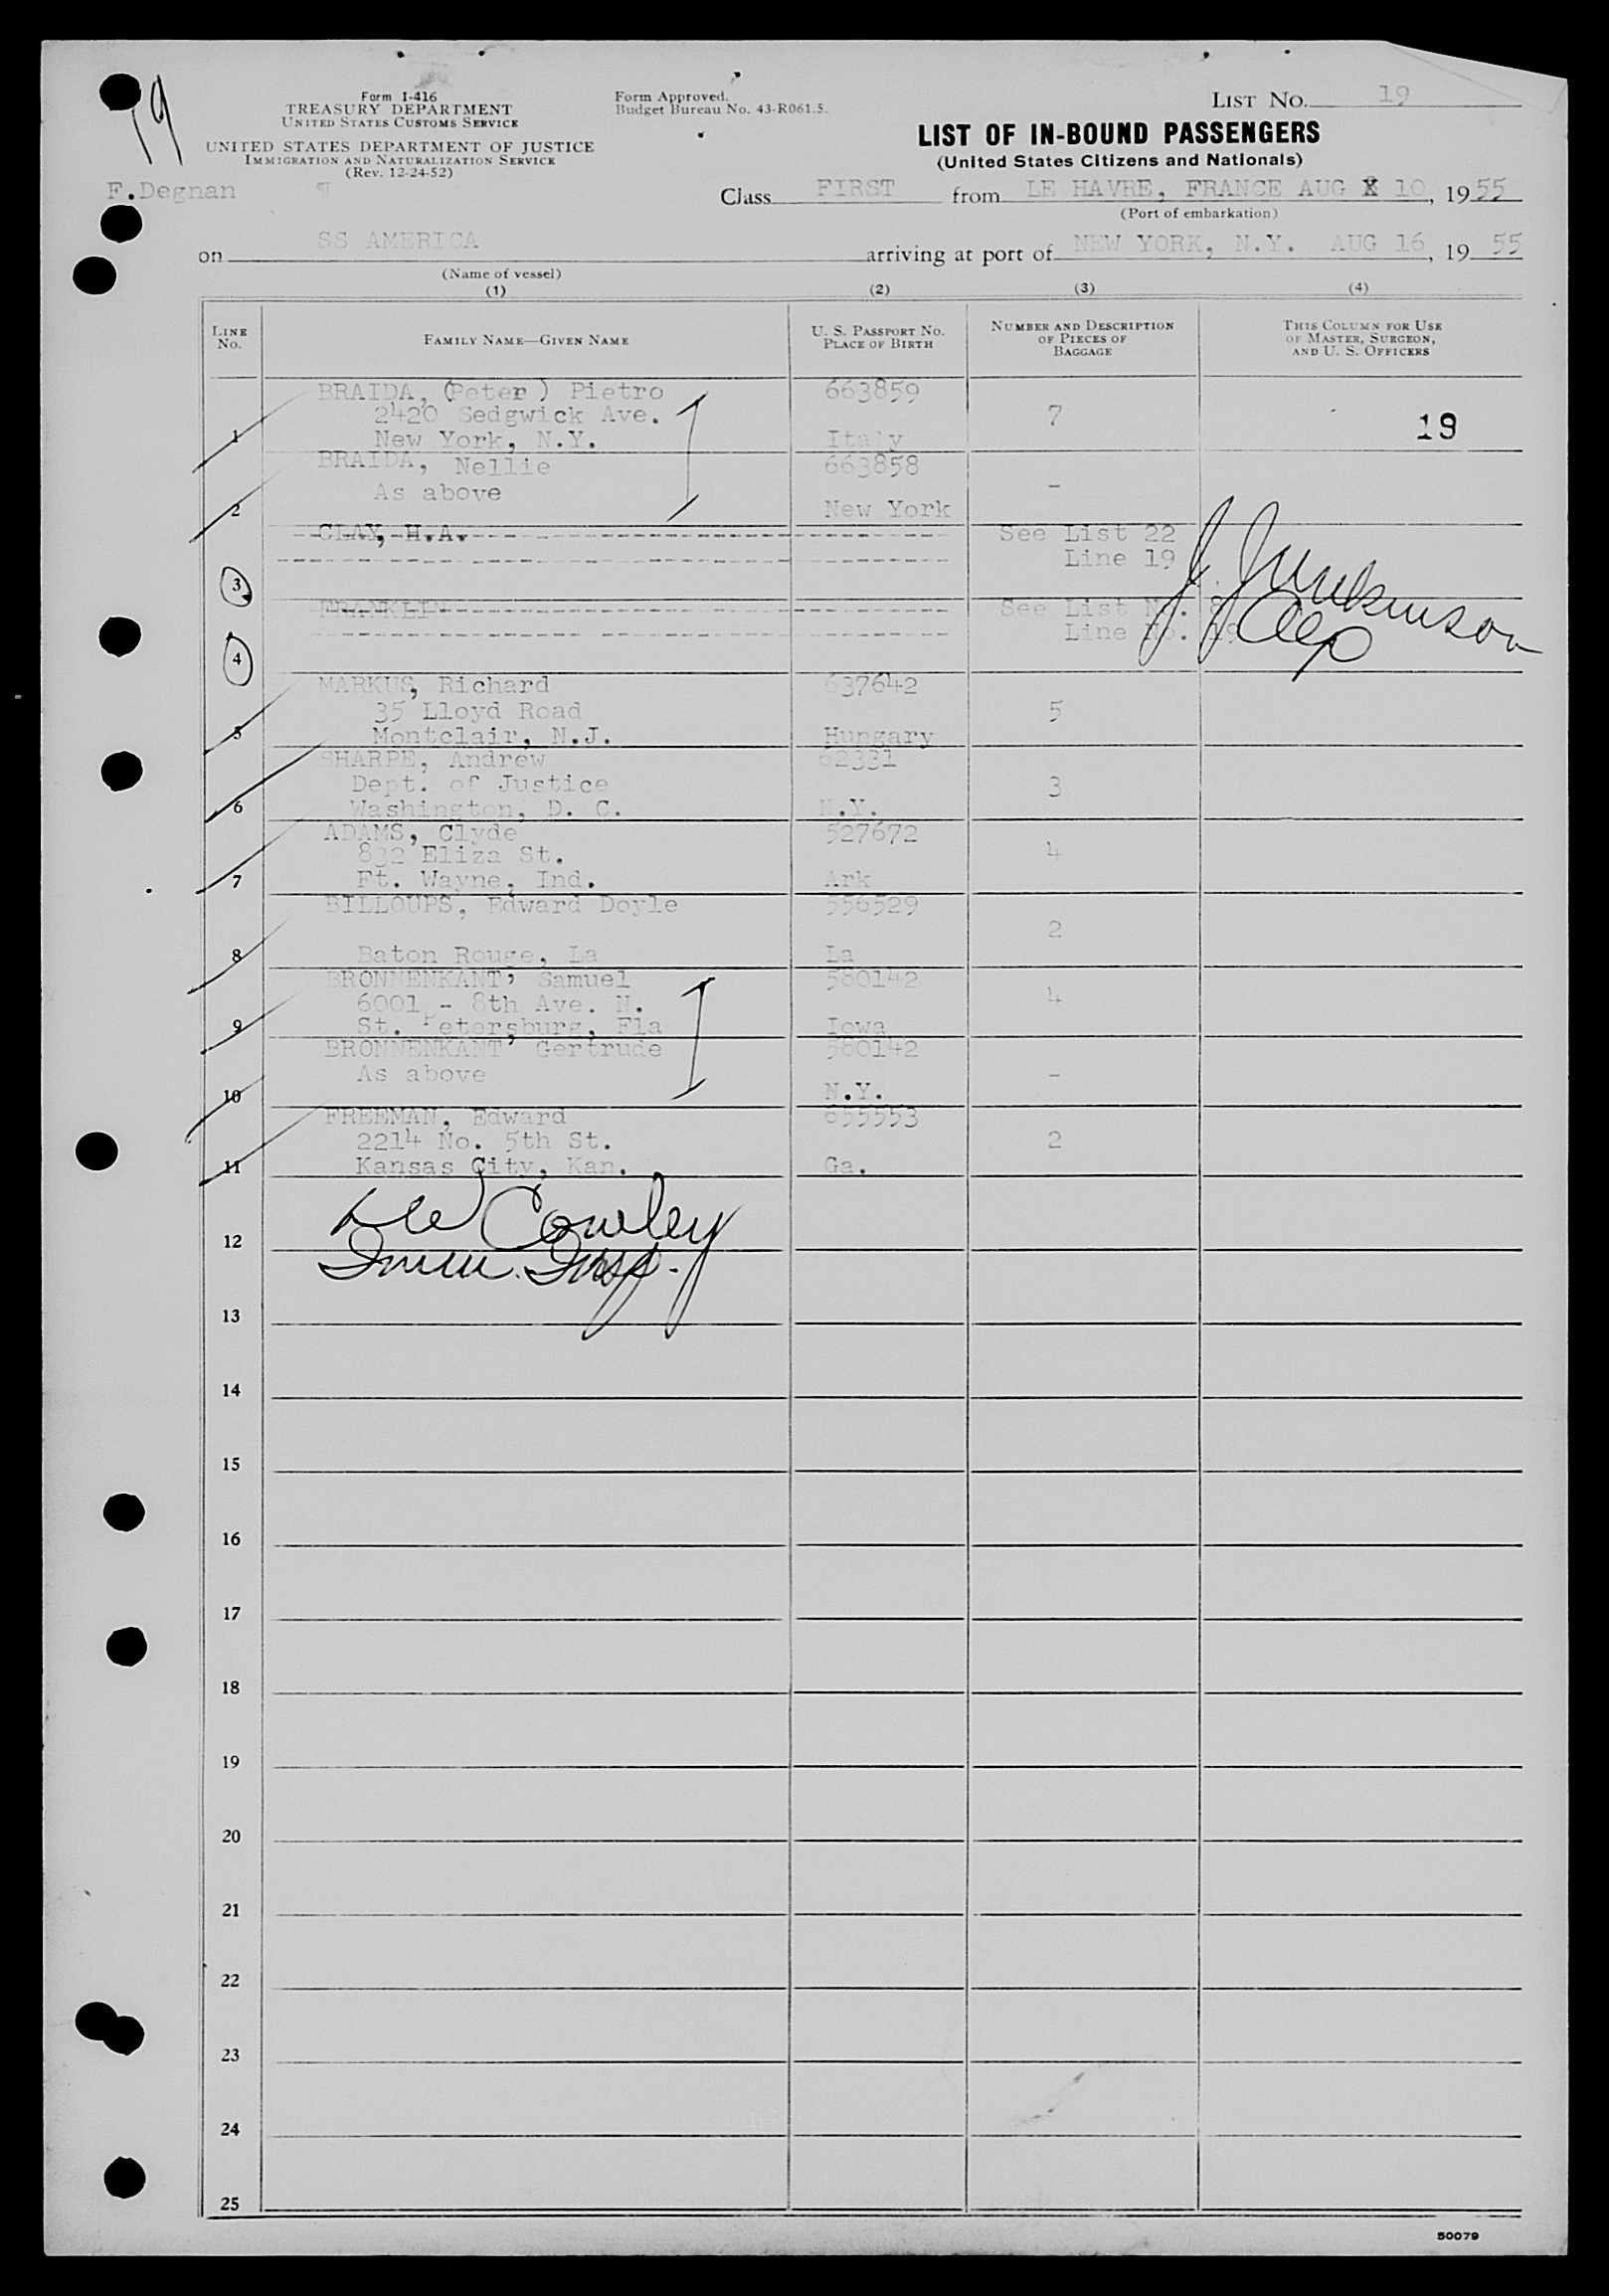 19
Form I-416
TREASURY DEPARTMENT
UNITED STATES CUSTOMS SERVICE
UNITED STATES DEPARTMENT OF JUSTICE
IMMIGRATION AND NATURALIZATION SERVICE
(Rev. 12-24-52)
Form Approved.
Budget Bureau No. 43-R061.5.
LIST NO. 19
LIST OF IN-BOUND PASSENGERS
(United States Citizens and Nationals)
F.Degnan
Class FIRST from LE HAVRE, FRANCE AUG X 10, 1955
(Port of embarkation)
on SS AMERICA arriving at port of NEW YORK, N.Y. AUG 16, 1955
(Name of vessel)
(1) (2) (3) (4)
LINE NO. FAMILY NAME—GIVEN NAME U. S. PASSPORT NO. PLACE OF BIRTH NUMBER AND DESCRIPTION OF PIECES OF BAGGAGE THIS COLUMN FOR USE OF MASTER, SURGEON, AND U. S. OFFICERS
BRAIDA, (Peter) Pietro 663859
2420 Sedgwick Ave. 7
1 New York, N.Y. Italy 19
BRAIDA, Nellie 663858
As above -
2 New York
CLAY, H.A. See List 22
Line 19
3
FRANKLIN See List No. 8
Line No. 19
4
J. Junkinson
MARKUS, Richard 637642
35 Lloyd Road 5
5 Montclair, N.J. Hungary
SHARPE, Andrew 62331
Dept. of Justice 3
6 Washington, D. C. N.Y.
ADAMS, Clyde 527672
832 Eliza St. 4
7 Ft. Wayne, Ind. Ark
BILLOUPS, Edward Doyle 556529
2
8 Baton Rouge, La La
BRONNENKANT, Samuel 580142
6001 - 8th Ave. N. 4
9 St. Petersburg, Fla Iowa
BRONNENKANT, Gertrude 580142
As above -
10 N.Y.
FREEMAN, Edward 655553
2214 No. 5th St. 2
11 Kansas City, Kan. Ga.
Cowley
12
Imm. Insp.
13
14
15
16
17
18
19
20
21
22
23
24
25
50079